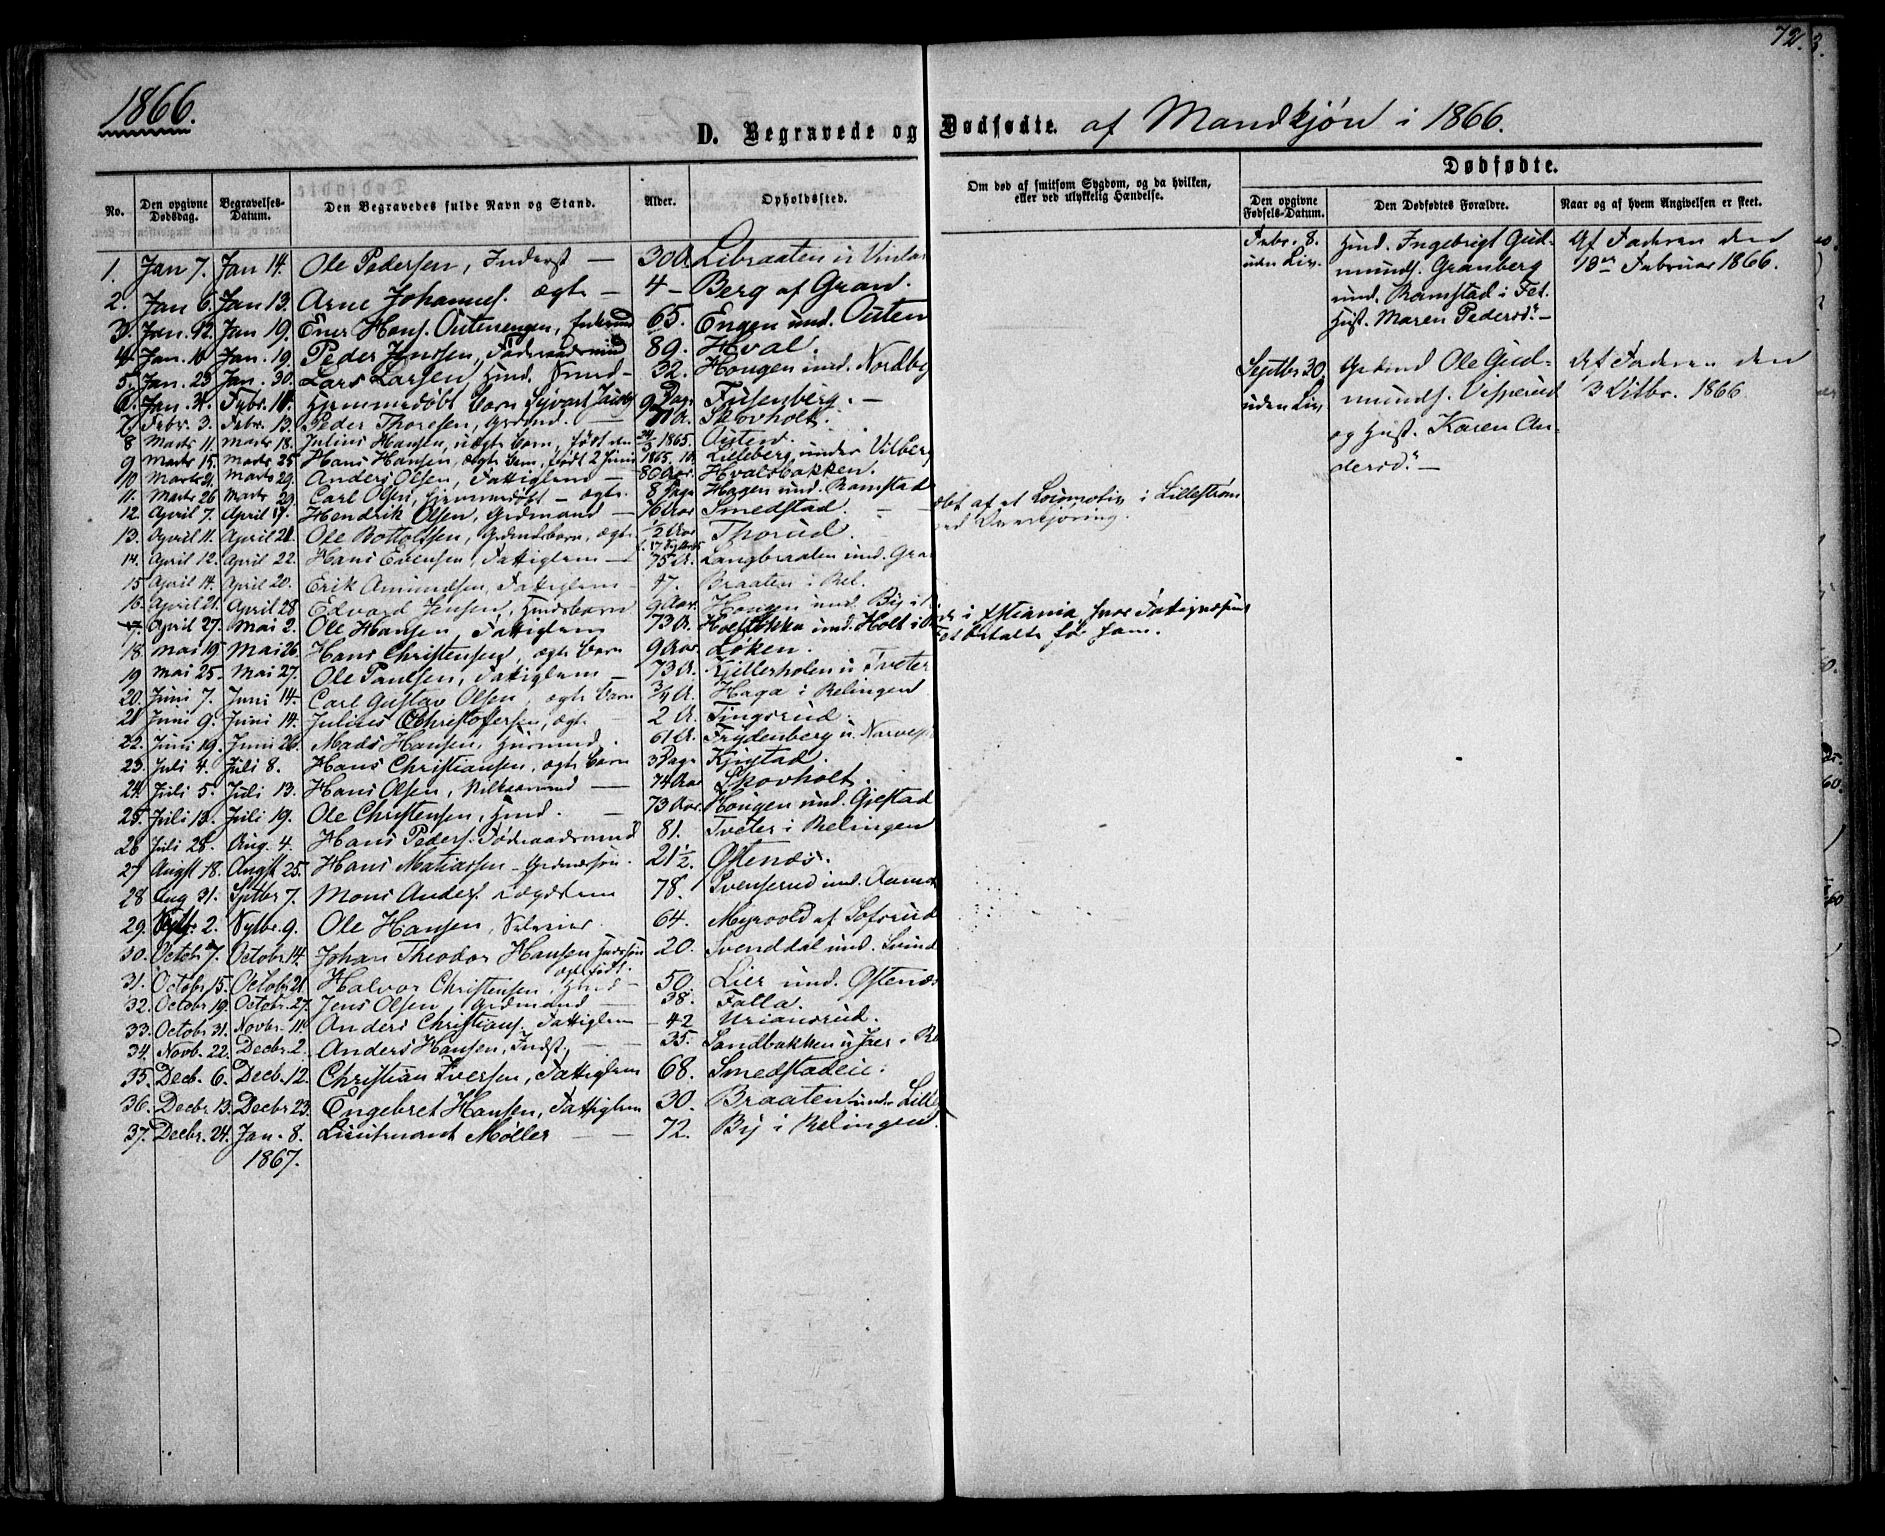 72.
1866.
D. Begravede og Dødfødte. af Mandkjøn i 1866.
No. Den opgivne Dødsdag. Begravelses-Datum. Den Begravedes fulde Navn og Stand. Alder. Opholdssted. Om død af smitsom Sygdom, og da hvilken, eller ved ulykkelig Hændelse. Dødfødte. Den opgivne Fødsels-Datum. Den Dødfødtes Forældre. Naar og af hvem Angivelsen er skeet.
1. Jan 7. Jan 14. Ole Pedersen, Inderst — 30 A. Libraaten u
2. Jan 6. Jan 13. Arne Johannes. ægte — 4 — Berg af Gran.
3. Jan. 12. Jan 19. Hans. Enkemand 65. Engen und. Østen
4. Jan. 10 Jan. 19. Peder Jensen, Føderaadsmand 89. Hval.
5. Jan. 23 Jan. 30. Lars Larsen, Husd. 32. Hougen und. Nordby
6. Jan. 31. Febr. 11. Hjemmedøbt Barn Syvert 9 Dage —
7. Febr. 3. Febr. 13. Peder Thoresen, Grdmd. — A. Skovholt.
8 Marts 11. Marts 18. Julius Hansen, uægte Barn, født den 1865. Østend.
9 Marts 15. Marts 25 Hans Hansen, ægte Barn, født 2 Juni 1865. Lilleberg under Vilberg
10 Marts 21. Marts 29. Anders Olsen, Fattiglem — 80 Aar. Hvalsbakken.
11. Marts 26 Marts 29. Carl Olsen, hjemmedøbt — ægte. 8 Dage Hagen und. Ramstad
12 April 7. April 17. Hendrik Olsen, Grdmand — 76 Aar Smedstad. — af et Locomotiv i Lillestrøm
13. April 11. April 21. Ole Bottolfsen, Grdmdsbarn, ægte ½ Aar Thorud.
14. April 12. April 22. Hans Evensen, Fattiglem — 75 A. Langbraaten und. Gran
15 April 14. April 20. Erik Amundsen, Fattiglem — 47. Braaten i Rel.
16. April 21. April 28 Edvard Jensen, Husdsbarn 9 Aar. Hougen und. By i
17. April 27. Mai 2. Ole Hansen, Fattiglem 73 A. und. Holt i i Xstiania, hvor Fattigvæsenet
betalte for ham.
18. Mai 19. Mai 26. Hans Christensen, ægte Barn 9 Aar Løken.
19 Mai 25. Mai 27. Ole Paulsen, Fattiglem — 73 A. Kjillerholen u Tveter
20. Juni 7. Juni 14. Carl Gustav Olsen, ægte Barn ¾ A. Haga i Relingen
21 Juni 9. Juni 14. Julius Christoffersen, ægte — 2 A. Tingsrud.
22. Juni 19. Juni 26. Mads Hansen, Husmand. 61 A. Frydenberg u.
23. Juli 4. Juli 8. Hans Christiansen, ægte Barn 3 Dage Kjustad.
24. Juli 5. Juli 13. Hans Olsen, — 74 Aar Skovholt.
25. Juli 12. Juli 19. Ole Christensen, Husd. — 73 Aar. Hougen und. Gjestad
26 Juli 28. Aug. 4. Hans Peders. Føderaadsmand 81. Tveter i Relingen
27 Augst 18. Augst 25. Hans Matiassen — Grdmdssøn. 21½. Østenæs.
28 Aug 31. Sptbr 7. Mons Anders. Lægdslem 78. Svenserud und. Aamot
29. Septbr. 2. Septbr. 9. Ole Hansen, Selveier 64. Myrvold af Lofsrud
30. Octob 7. Octobr 14. Johan Theodor Hansen 20. Svenddal und. Svind
ægtefødt.
31. Octobr 15. Octobr 21. Halvor Christensen, Husd — 50. Lier und. Østenæs
32. Octobr 19. Octobr. 27. Jens Olsen, Grdmand — 38. Falla.
33. Octobr 31. Novbr. 11. Anders Christians. Fattiglem — 42 Uriansrud.
34. Novb. 22. Decbr. 2. Anders Hansen, Indst. — 35. Sandbakken u Jaer i Re
35. Decb. 6. Decb. 12. Christian Iversen, Fattiglem 68. Smedstadeie.
36. Decbr. 13. Decbr 23. Engebret Hansen, Fattiglem 30. Braaten under Lille
37. Decbr. 24. Jan. 8. Lieutenant Møller — — 72. By i Relingen.
1867.
Febr. 8. Husd. Ingebrigt Gud- Af Faderen den
uden Liv. munds. Granberg 18de Februar 1866.
und. Ramstad i Fet.
Hust. Maren Pedersd. —
Septbr 30. Grdmd Ole Gud- Af Faderen den
uden Liv munds. Vesterud 3 Octbr. 1866
og Hust. Karen An-
dersd. —